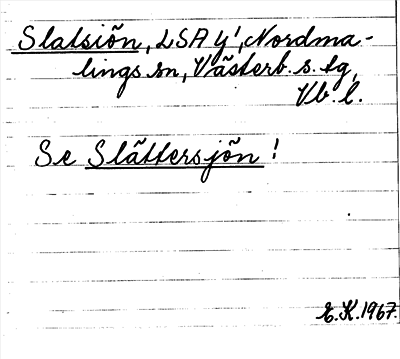 Slatsiön, LSA y', Nordma-
lings sn, Västerb. s. tg,
Vb. l.
Se Slättersjön!
E.K. 1967.